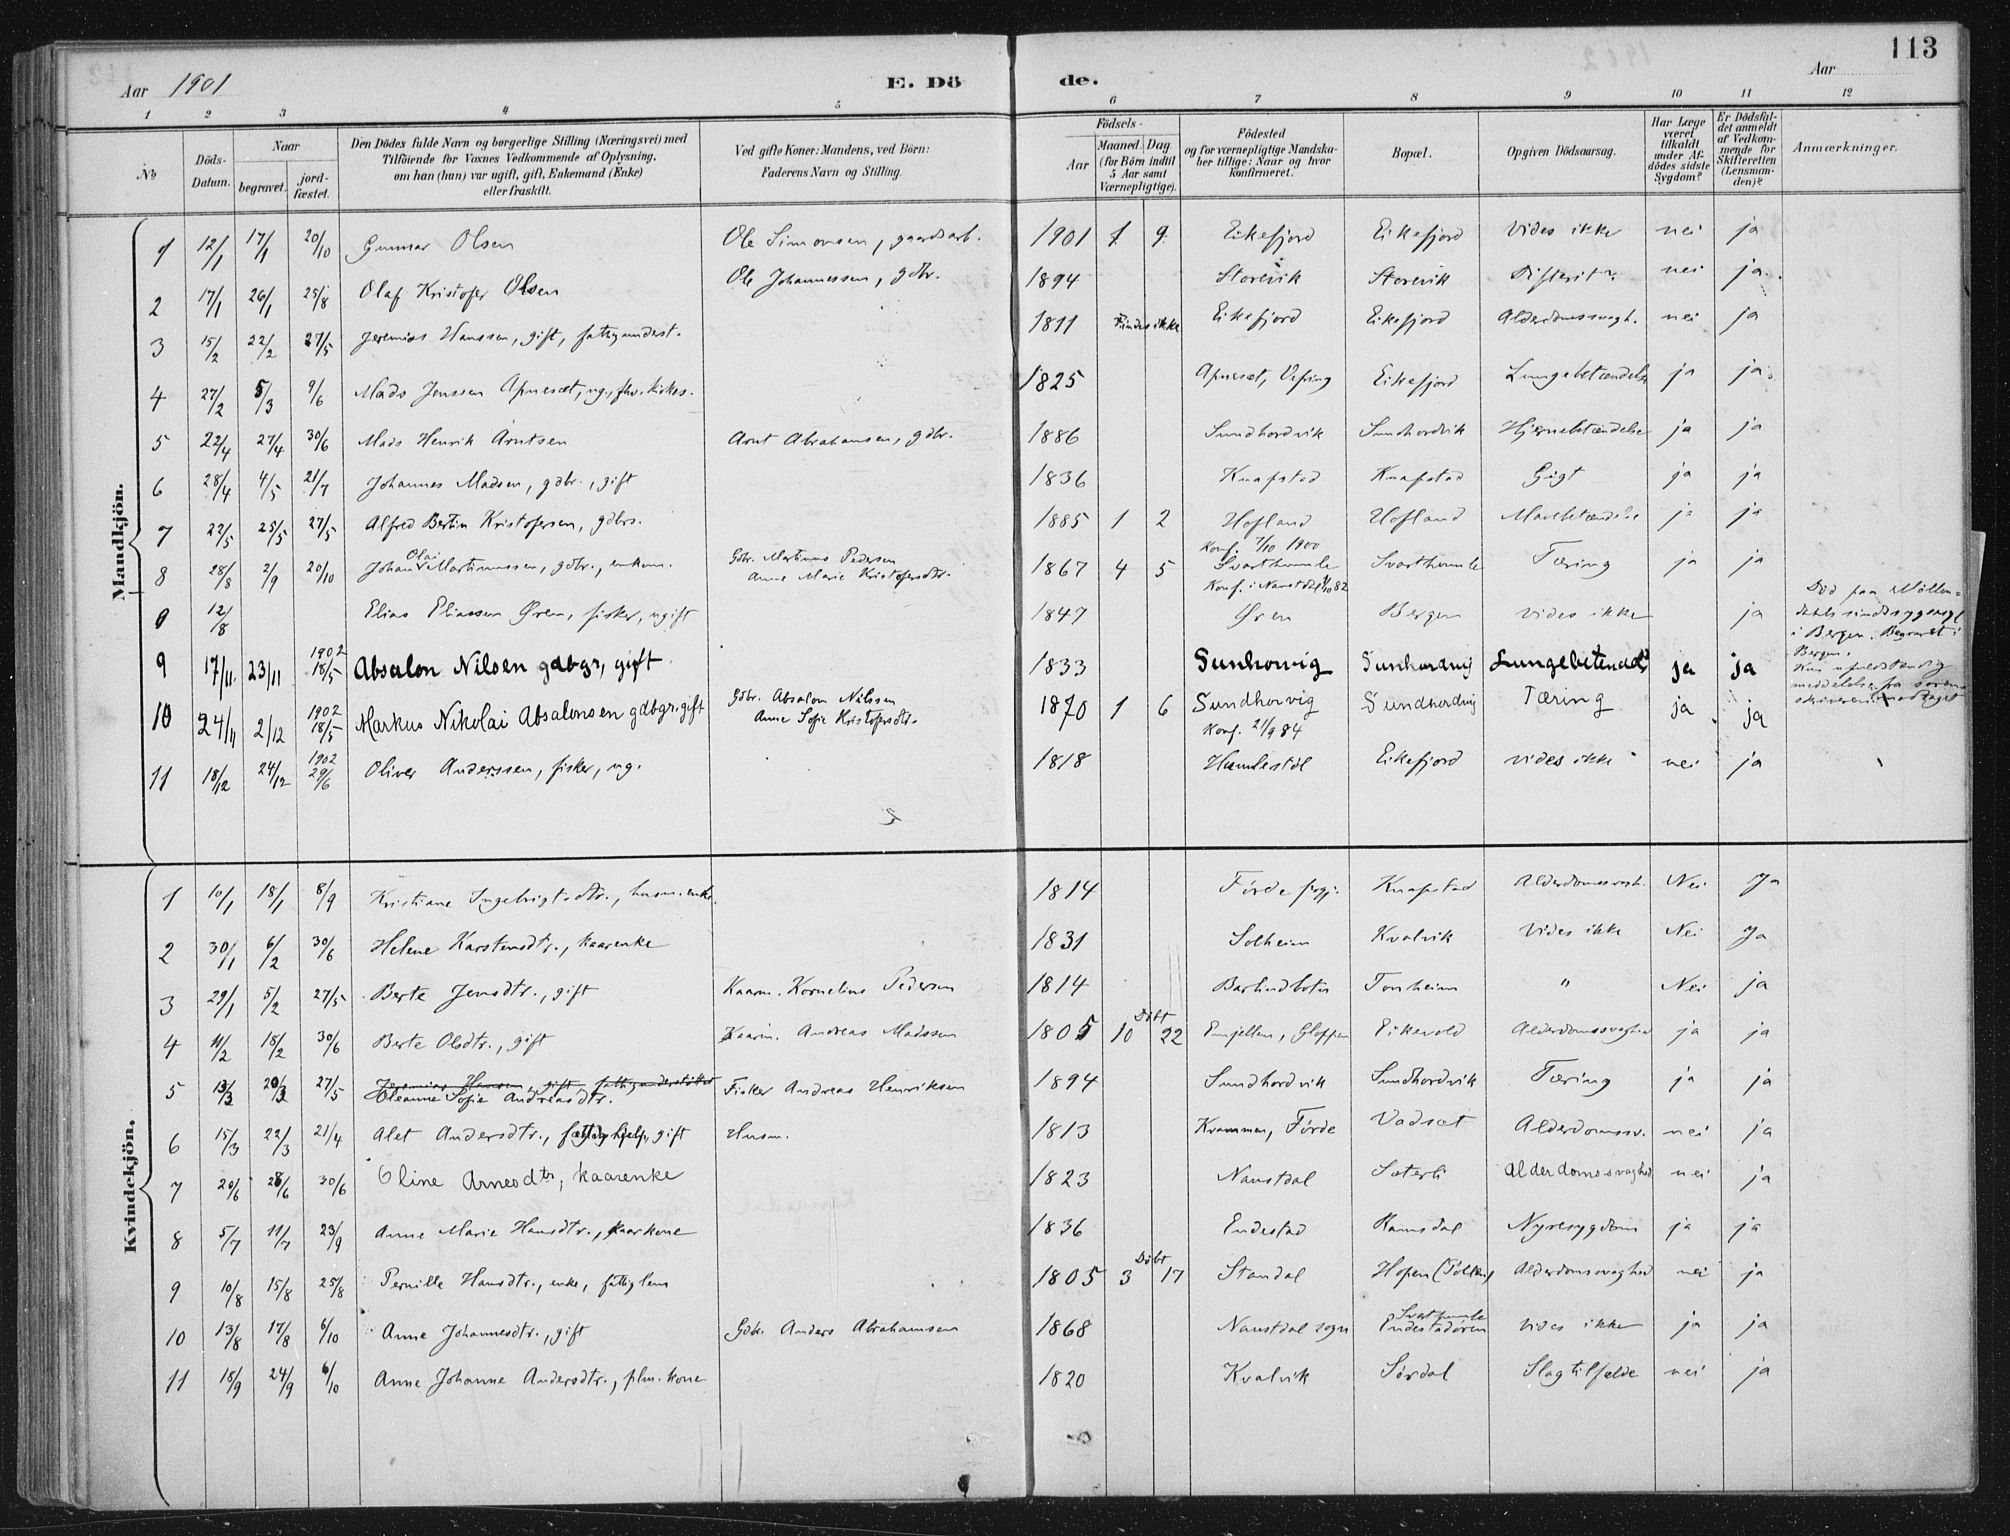 113
Aar 1901 E. Dö de. Aar
1 2 3 4 5 6 7 8 9 10 11 12
No Döds-Datum. Naar begravet. jord-fæstet. Den Dödes fulde Navn og borgerlige Stilling (Næringsvei) med Tilföiende for Voxnes Vedkommende af Oplysning, om han (hun) var ugift, gift, Enkemand (Enke) eller fraskilt. Ved gifte Koner: Mandens, ved Börn: Faderens Navn og Stilling. Födsels- Aar Maaned. Dag (for Börn indtil 5 Aar samt Værnepligtige). Födested og for værnepligtige Mandskaber tillige: Naar og hvor Konfirmeret. Bopæl. Opgiven Dödsaarsag. Har Læge været tilkaldt under Afdödes sidste Sygdom? Er Dödsfaldet anmeldt af Vedkommende for Skifteretten (Lensmanden)? Anmærkninger.
Mandkjön.
1 12/1 17/1 20/10 Gunnar Olsen Ole Simonsen, gaardarb. 1901 1 9 Eikefjord Eikefjord Vides ikke nei ja
2 17/1 26/1 25/8 Olaf Kristofer Olsen Ole Johannessen, gdbr. 1894 Storevik Storevik Difterit nei ja
3 15/2 22/2 27/5 Jeremias Hanssen, gift, fattigunderst. 1811 Findes ikke Eikefjord Eikefjord Alderdomssvagh. nei ja
4 27/2 5/3 9/6 Mads Jenssen Apnesæt, ug., fhv. kirkes. 1825 Apnesæt, Vefring Eikefjord Lungebetændelse ja ja
5 22/4 27/4 30/6 Mads Henrik Arntsen Arnt Abrahamsen, gdbr. 1886 Sundhordvik Sundhordvik Hjernebetændelse ja ja
6 28/4 4/5 21/7 Johannes Madsen, gdbr., gift 1836 Knapstad Knapstad Gigt ja ja
7 22/5 25/5 27/5 Alfred Bertin Kristofersen, gdbrs. 1885 1 2 Hofland Hofland Mavebetændelse ja ja
Konf. 7/10 1900
8 28/8 2/9 20/10 Johan Olai Martinussen, gdbr., enkem. Gdbr. Martinus Pedersen 1867 4 5 Svarthumle Svarthumle Tæring ja ja
Anne Marie Kristofersdtr. Konf. i Naustdal 1/10 82
9 12/8 Elias Eliassen Øren, fisker, ugift 1847 Øren Bergen vides ikke ja Död paa Möllendals sindssygeasyl i Bergen. Begravet i Bergen.
9 17/11 23/11 1902 18/5 Absalon Nilsen gdbgr, gift 1833 Sunhorvig Sunhordvig Lungebetændels ja ja
10 24/11 2/12 1902 18/5 Markus Nikolai Absalonsen gdbgr. gift Gdbr. Absalon Nilssen 1870 1 6 Sundhorvig Sundhordvig Tæring ja ja
Anne Sofie Kristofersdtr. Konf. 21/9 84
11 18/12 24/12 1902 29/6 Oliver Anderssen, fisker, ug. 1818 Humlestöl Eikefjord vides ikke nei ja
Kvindekjön.
1 10/1 18/1 8/9 Kristiane Ingebrigtsdtr., husm. enke. 1814 Förde prgj. Knapstad Alderdomssvagh. Nei Ja
2 30/1 6/2 30/6 Helene Karstensdtr., kaarenke 1831 Solheim Kvalvik Vides ikke Nei Ja
3 29/1 5/2 27/5 Berte Jensdtr., gift Kaarm. Kornelius Pedersen 1814 Barlindbotn Tonheim " Nei ja
4 11/2 18/2 30/6 Berte Olsdtr., gift Kaarm. Andreas Madssen 1805 10 Döbt 22 Emjellen, Gloppen Eikevold Alderdomssvaghed ja ja
5 13/3 20/3 27/5 Jeremias Hansen, gift, fattigunderstöttet Fisker Andreas Henriksen 1894 Sundhordvik Sundhordvik Tæring ja ja
Oleanne Sofie Andreasdtr.
6 15/3 22/3 21/4 Alet Andersdtr., fattighjelp, gift Husm. 1813 Kvammen, Förde Vadsæt Alderdomssv. nei ja
7 20/6 28/6 30/6 Oline Arnesdtr, kaarenke 1823 Naustdal Sæterli Alderdomssvaghed nei ja
8 5/7 11/7 23/9 Anne Marie Hansdtr., kaarkone 1836 Endestad Ramsdal Nyresygdom ja ja
9 10/8 15/8 25/8 Pernille Hansdtr., enke, fattiglem 1805 3 Döbt 17 Standal Hopen Alderdomssvaghed nei ja
10 13/8 17/8 6/10 Anne Johannesdtr., gift Gdbr. Anders Abrahamsen 1868 Naustdal sogn Endestadören vides ikke ja ja
11 18/9 24/9 6/10 Anne Johanne Andersdtr., plm. kone 1820 Kvalvik Sördal Slagtilfælde nei ja